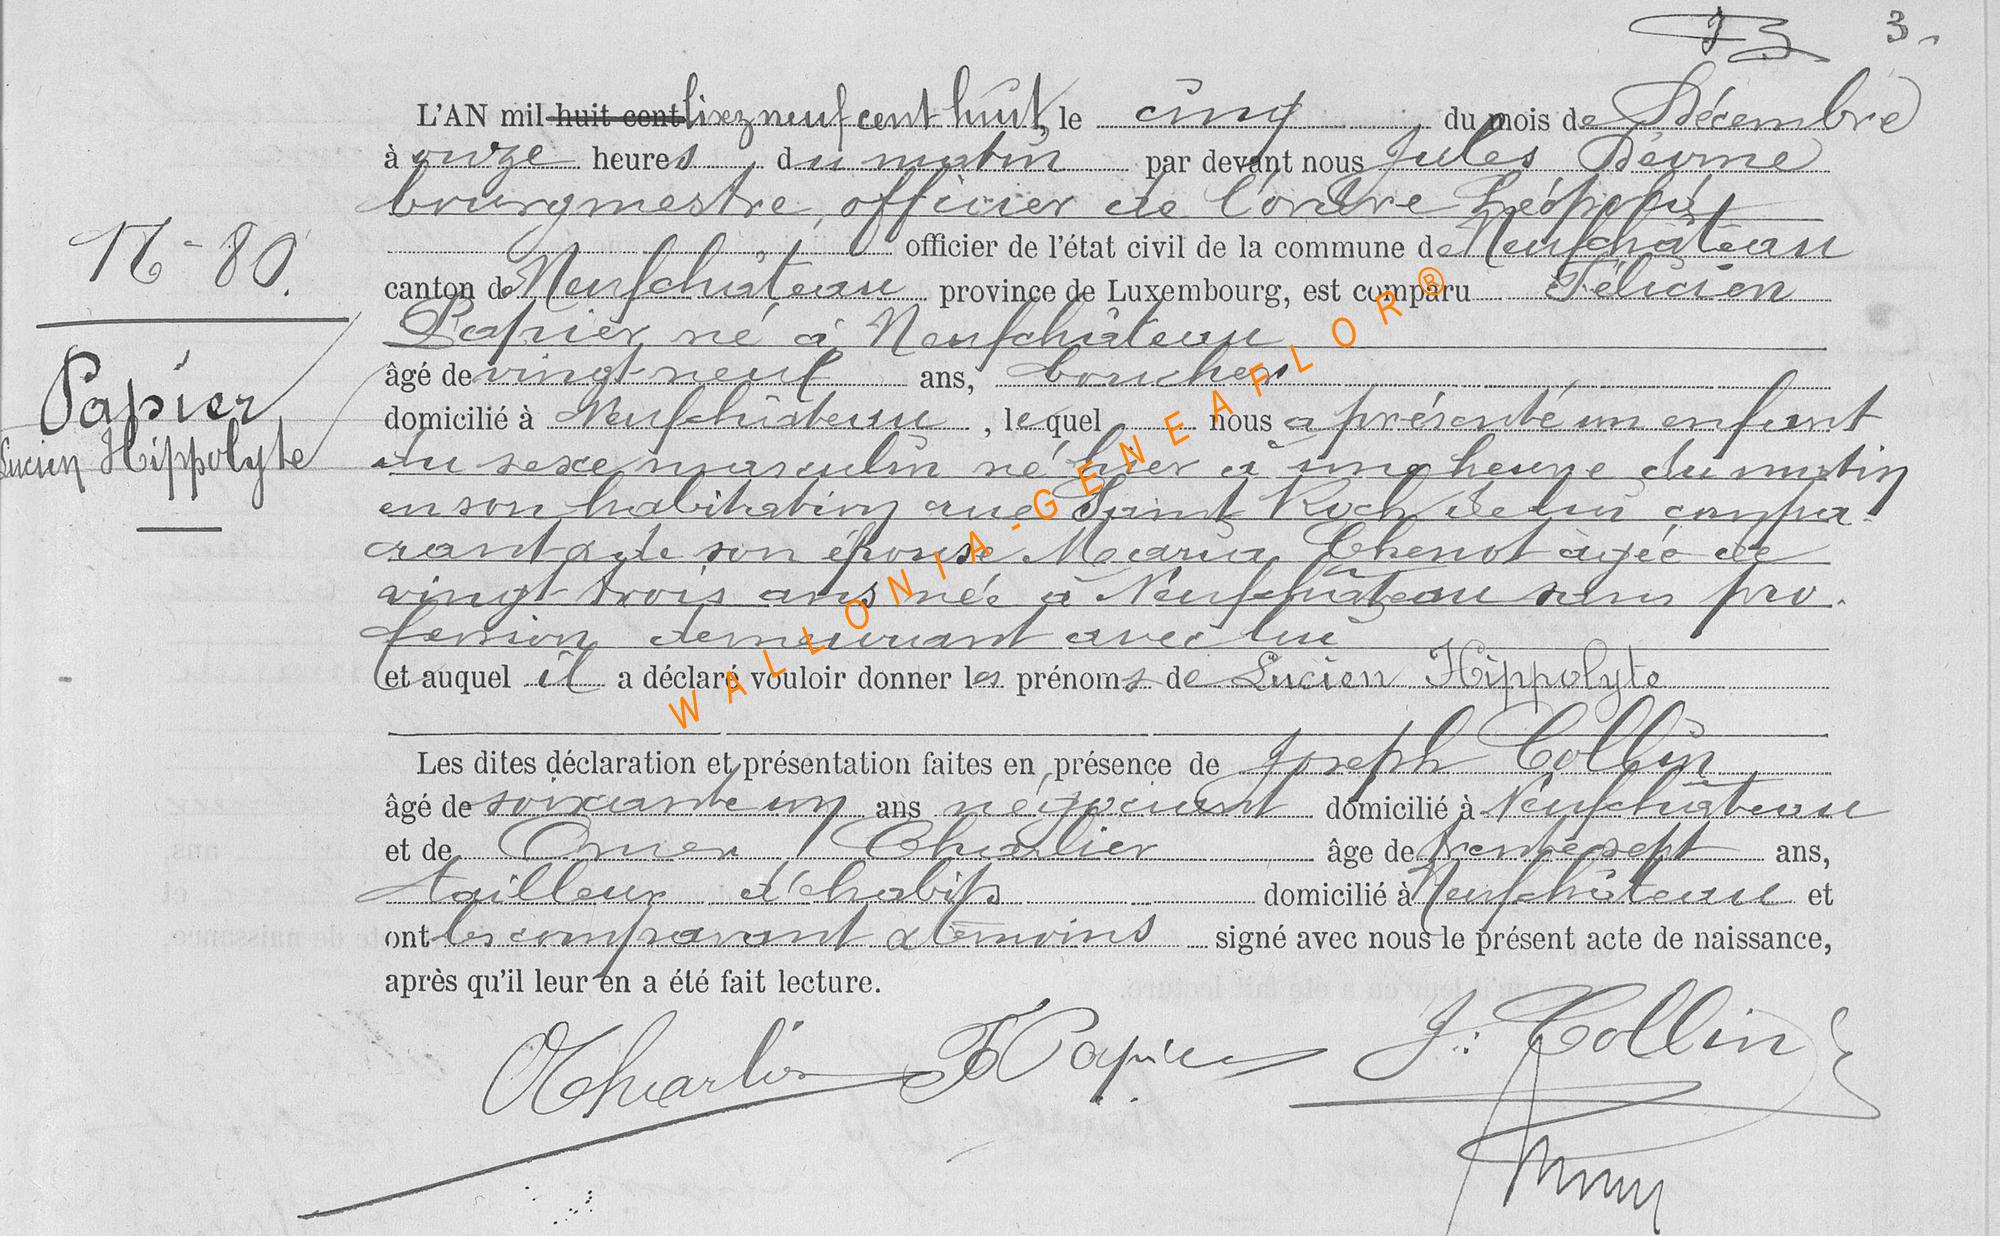 3.
L'AN mil huit cent neuf cent huit, le cinq du mois de Décembre
à onze heures du matin par devant nous Jules
bourgmestre, officier de l'ordre Léopold
officier de l'état civil de la commune de Neufchâteau
canton de Neufchâteau province de Luxembourg, est comparu Félicien
Papier né à Neufchâteau
N° 80.
âgé de vingt-neuf ans, boucher
domicilié à Neufchâteau, lequel nous a présenté un enfant
Papier
Lucien Hippolyte
du sexe masculin né hier à une heure du matin
en son habitation rue Saint Roch de lui compa-
rant & de son épouse Maria Thenot agée de
vingt trois ans née à Neufchâteau sans pro-
fession demeurant avec lui
et auquel il a déclaré vouloir donner les prénoms de Lucien Hippolyte
Les dites déclaration et présentation faites en présence de Joseph Collin
âgé de soixante un ans négociant domicilié à Neufchâteau
et de Omer Charlier âge de trente sept ans,
tailleur d'habits domicilié à Neufchâteau et
ont les comparant & témoins signé avec nous le présent acte de naissance,
après qu'il leur en a été fait lecture.
O Charlier F Papier J. Collin
WALLONIA-GENEAFLOR®